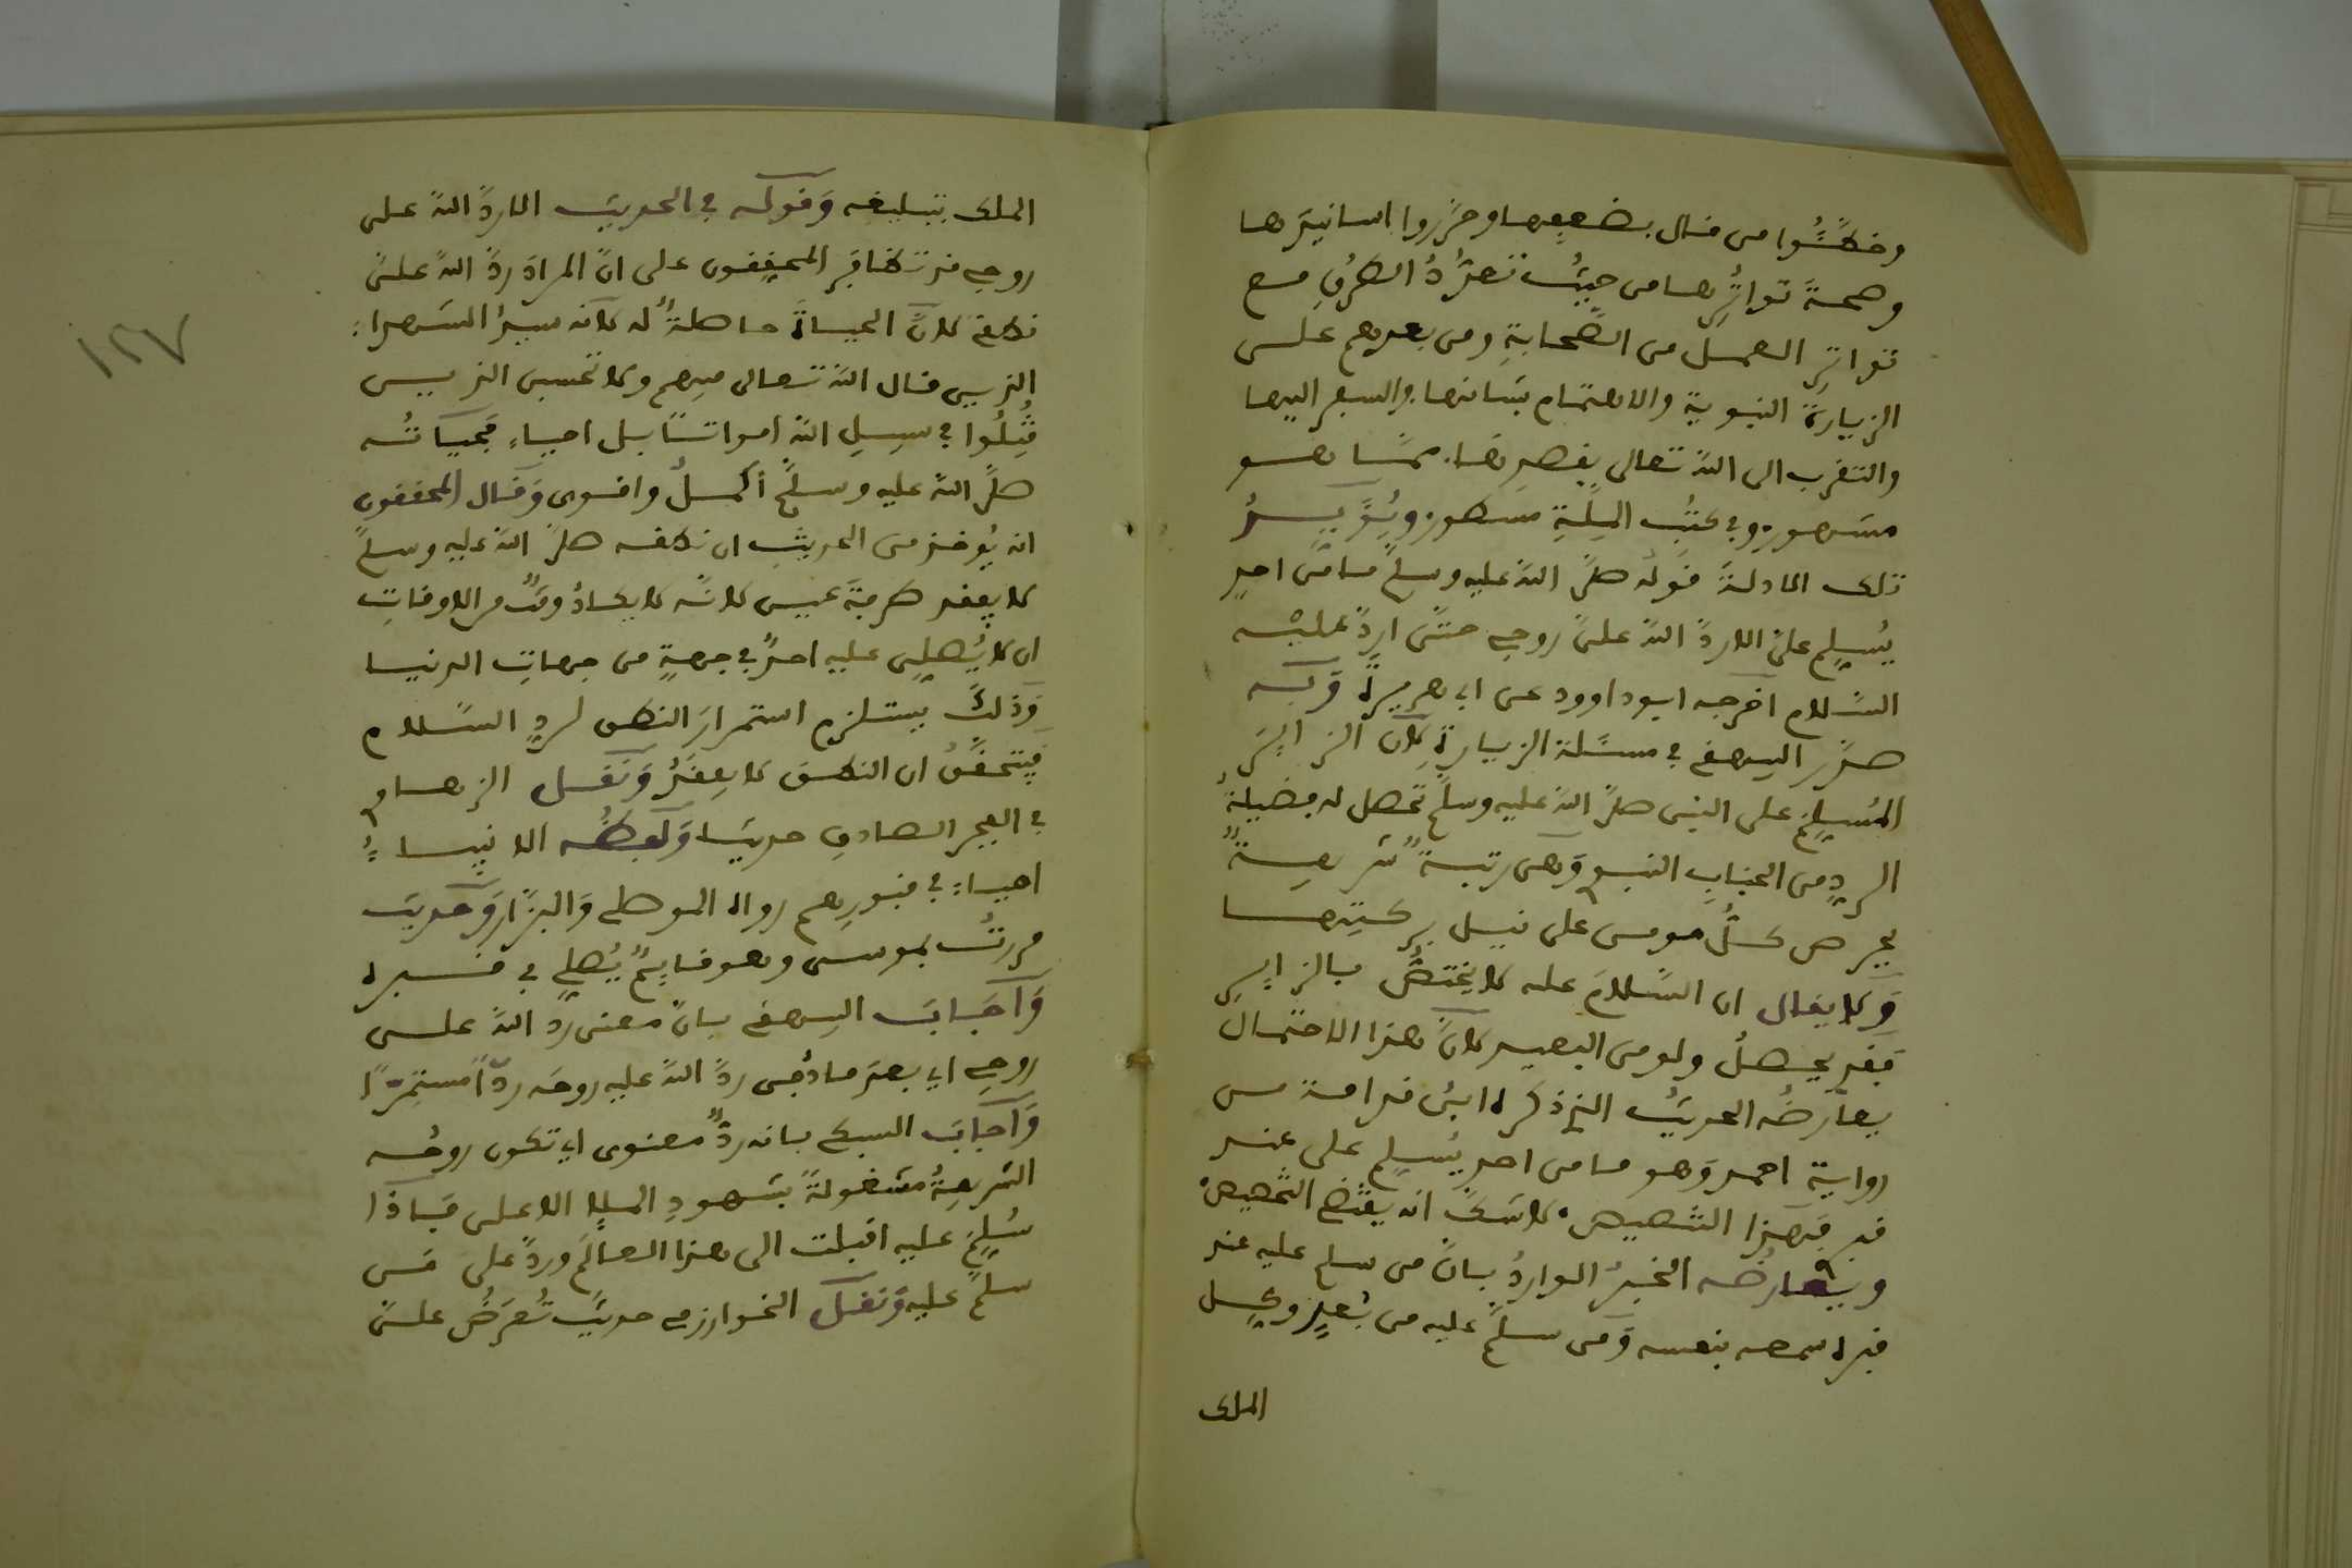 وخطَّئُوا من قال بضعفِها وحَرَّروا اسانيدَها
وصحةَ تواتُرِها من حيثُ تعدُّدُ الطرُقِ مع
تواترِ العمل من الصَّحابةِ ومن بعدهم على
الزيارةِ النبوية والاهتمام بشانها والسفر اليها
والتقرب الى الله تعالى بقصدها ممَّا هو
مشهور وفي كتُبِ المِلَّةِ مسطور ويُؤَيِّدُ
تلك الادلةَ قولُه صلَّى الله عليه وسلَّم ما من احدٍ
يُسلِّم عليَّ الا ردَّ الله عليَّ روحي حتَّى اردَّ عليْه
السَّلام اخرجه ابو داوود عن ابي هريرة وَبه
صدَّر البيهقي في مسئلة الزيارةِ لانَّ الزايرَ
المُسلِّم على النبي صلَّى الله عليه وسلَّم تحصل له فضيلةُ
الردِّ من الجنابِ النبوي وَهي رتبةٌ شريفةٌ
يحرص كلُّ مومن على نيل بركتِها
وَلا يقال ان السَّلامَ عليه لا يختصُّ بالزايرِ
فَقد يحصلُ ولو من البعيد لانَّ هذا الاحتمالَ
يعارضُه الحديثُ الذي ذكره ابنُ قدامة من
رواية احمد وَهو ما من احدٍ يُسلِّم علي عند
قبري فهذا التخصيص لا شكَّ انه يقتضي التخصيص
ويعارضُه الخبرُ الواردُ بانَّ من سلم عليه عند
قبره سمعه بنفسه وَمن سلَّم عليه من بُعدٍ وُكِّل
الملك
الملك بتبليغه وَقولُه في الحديث الا ردَّ الله علي
روحي قد تظافَر المحققون على انَّ المرادَ ردَّ الله عليَّ
نطقي لانَّ الحياةَ حاصلةٌ له لانه سيدُ الشهداء
الذين قال الله تعالى فيهم ولا تحسبن الذين
قُتِلُوا في سبيلِ الله امواتًا بل احياء فَحياتُه
صلَّى الله عليه وسلَّم أكملُ واقوى وَقال المحققون
انه يُوخذ من الحديثِ ان نطقه صلَّى الله عليه وسلَّم
لا يفقد طرفةَ عين لانَّه لا يكادُ وقتٌ من الاوقاتِ
ان لا يُصلِّي عليه احدٌ في جهةٍ من جهاتِ الدنيا
وَذلكَ يستلزم استمرارَ النطق لردِّ السَّلام
فيتحقَّقُ ان النطق لا يفقَدُ وَنقل الزهاوي
في الفجر الصادق حديثا وَلفظُه الانبياءُ
احياءٌ في قبورِهم رواه الموصلي وَالبزَّار وَحديث
مررتُ بموسى وهو قايمٌ يُصلِّي في قبره
وَاَجابَ البيهقي بانَّ معنى رد الله علي
روحي اي بعدَ ما دُفِن ردَّ الله عليه روحَه ردًّا مستمِرًّا
وَاَجابَ السبكي بانه ردٌّ معنوى اي تكون روحُه
الشريفةُ مشغولةً بشهودِ الملإ الاعلى فَاذا
سُلِّمَ عليه اقبلت الى هذا العالَم وردَّ على من
سلَّم عليه وَنقل الخوارزمي حديث تُعرَضُ عليَّ
١٢٧